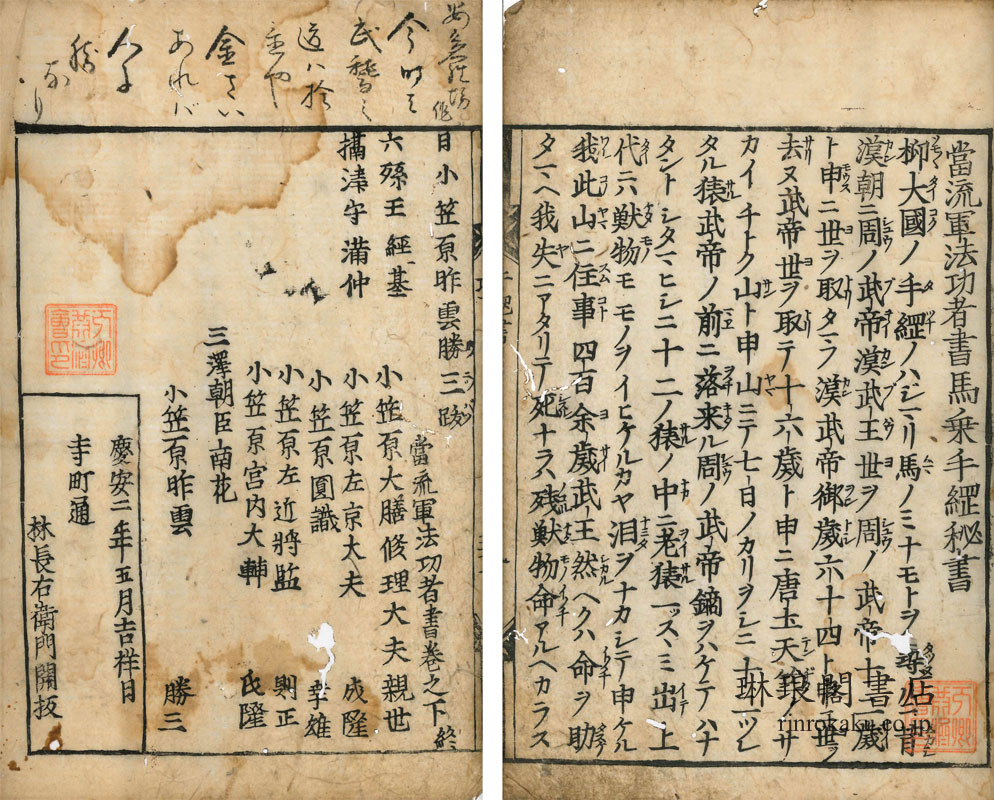 當流軍法功者書馬乗手綱秘書
抑大國ノ手綱ノハジマリ馬ノミナモトヲ尋
漢朝ニ周ノ武帝漢武王世ヲ周ノ武帝十書歳
ト申ニ世ヲ取タマフ漢武帝御歳六十四ト申世ヲ
去又武帝世ヲ取テ十六歳ト申ニ唐土天竺ノサ
カイチトク山ト申山ニテ七日ノカリヲシニ十二ツレ
タル猿武帝ノ前ニ落来ル周ノ武帝鏑ヲハケテハナ
タントシタマヒシニ十二ノ猿ノ中ニ老猿一ツスヽミ出上
代六獣物モモノヲイヒケルカヤ泪ヲナカシテ申ケル
我此山ニ住事四百余歳武王然ヘクハ命ヲ助
タマヘ我失ニアタリテ死ナラハ残獣物命アルヘカラス
琳琅閣
rinrokaku.co.jp
作
今時之
武藝之
道ハ捨
金さい
あれバ
人に
勝
なり
目小笠原昨雲勝三跋
六孫王經基
攝津守滿仲
當流軍法功者書巻之下終
小笠原大膳修理大夫親世
小笠原左京大夫 成隆
小笠原圓識 孝雄
小笠原左近將監 則正
小笠原宮内大輔 氏隆
三澤朝臣南花
小笠原昨雲 勝三
慶安二年五月吉祥日
寺町通
林長右衛門開板